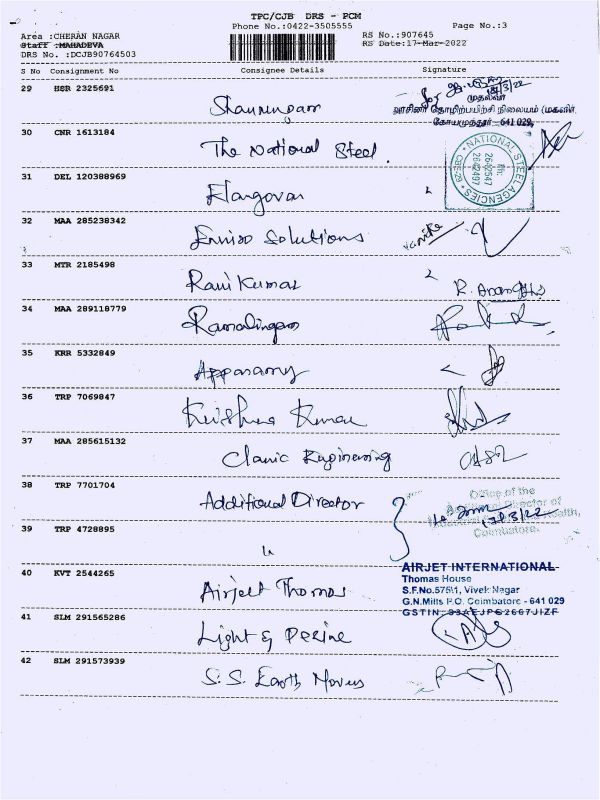 TPC/CJB DRS - PCM
Phone No.:0422-3505555 Page No.:3
Area :CHERAN NAGAR RS No.:907645
Staff :MAHADEVA RS Date:17-Mar-2022
DRS No. :DCJB90764503
S No Consignment No Consignee Details Signature
29 HSR 2325691
Shanmugam
முதல்வர்
அரசினர் தொழிற்பயிற்சி நிலையம் (மகளிர்
கோயமுத்தூர் - 641 029
30 CNR 1613184
The National Steel
NATIONAL STEEL AGENCIES
CBE-29
Ph:
2642547
2642497
31 DEL 120388969
Elangovan
32 MAA 285238342
Enviro Solutions
33 MTR 2185498
Ravi Kumar
34 MAA 289118779
Ramalingam
35 KRR 5332849
Appasamy
36 TRP 7069847
Krishna Kumar
37 MAA 285615132
Clanic Engineering
38 TRP 7701704
Additional Director
Office of the
Director of
Health,
Coimbatore.
17/3/22
39 TRP 4728895
40 KVT 2544265
Airjet Thomas
AIRJET INTERNATIONAL
Thomas House
S.F.No.575/1, Vivek Nagar
G.N.Mills P.O. Coimbatore - 641 029
41 SLM 291565286
Light & Desine
42 SLM 291573939
S.S. Earth Movers